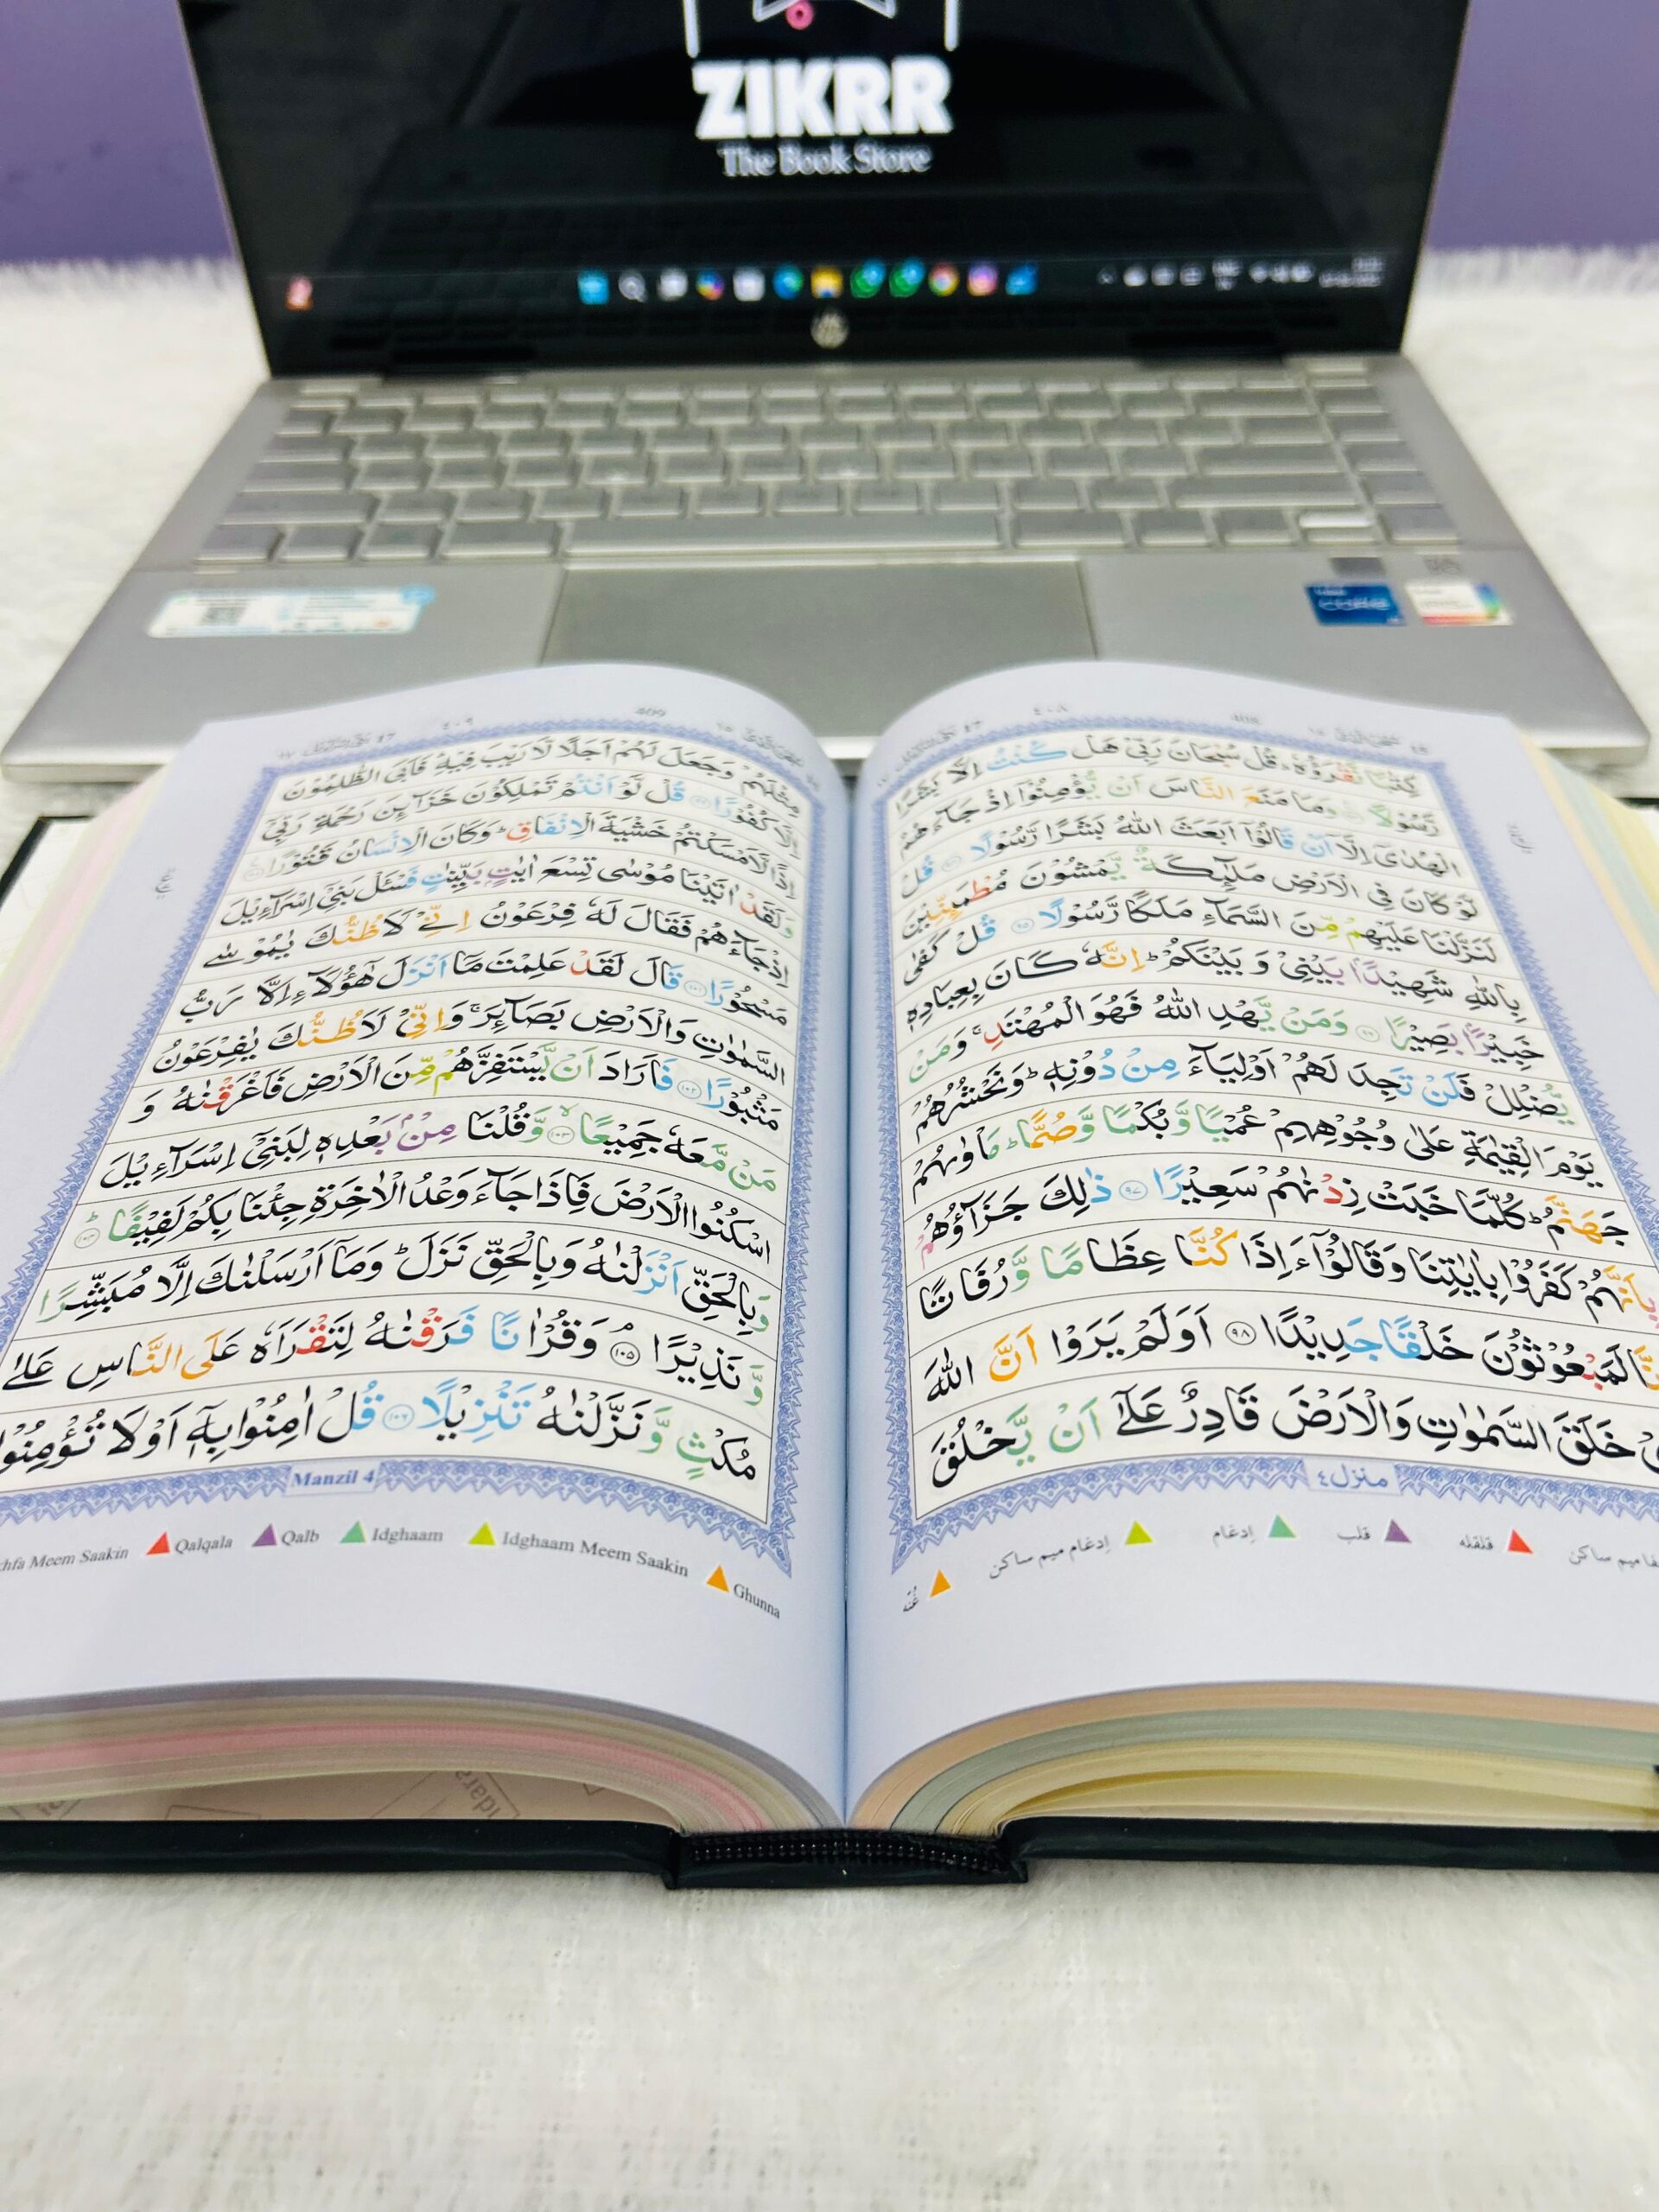 ZIKRR
The Book Store
٤٠٨
408
كِتٰبًا نَّقْرَؤُهٗ ؕ قُلْ سُبْحَانَ رَبِّيْ هَلْ كُنْتُ اِلَّا بَشَرًا
رَّسُوْلًا وَمَا مَنَعَ النَّاسَ اَنْ يُّؤْمِنُوْٓا اِذْ جَآءَهُمُ
الْهُدٰٓى اِلَّآ اَنْ قَالُوْٓا اَبَعَثَ اللّٰهُ بَشَرًا رَّسُوْلًا قُلْ
لَّوْ كَانَ فِي الْاَرْضِ مَلٰٓئِكَةٌ يَّمْشُوْنَ مُطْمَئِنِّيْنَ
لَنَزَّلْنَا عَلَيْهِمْ مِّنَ السَّمَآءِ مَلَكًا رَّسُوْلًا ۹۵ قُلْ كَفٰى
بِاللّٰهِ شَهِيْدًۢا بَيْنِيْ وَ بَيْنَكُمْ ؕ اِنَّهٗ كَانَ بِعِبَادِهٖ
خَبِيْرًۢا بَصِيْرًا ۹۶ وَمَنْ يَّهْدِ اللّٰهُ فَهُوَ الْمُهْتَدِ ۚ وَمَنْ
يُّضْلِلْ فَلَنْ تَجِدَ لَهُمْ اَوْلِيَآءَ مِنْ دُوْنِهٖ ؕ وَنَحْشُرُهُمْ
يَوْمَ الْقِيٰمَةِ عَلٰى وُجُوْهِهِمْ عُمْيًا وَّبُكْمًا وَّصُمًّا ؕ مَاْوٰىهُمْ
جَهَنَّمُ ؕ كُلَّمَا خَبَتْ زِدْنٰهُمْ سَعِيْرًا ۹۷ ذٰلِكَ جَزَآؤُهُمْ
بِاَنَّهُمْ كَفَرُوْا بِاٰيٰتِنَا وَقَالُوْٓا ءَاِذَا كُنَّا عِظَامًا وَّرُفَاتًا
ءَاِنَّا لَمَبْعُوْثُوْنَ خَلْقًا جَدِيْدًا ۹۸ اَوَلَمْ يَرَوْا اَنَّ اللّٰهَ
الَّذِيْ خَلَقَ السَّمٰوٰتِ وَالْاَرْضَ قَادِرٌ عَلٰٓى اَنْ يَّخْلُقَ
منزل ٤
قلقله
قلب
إدغام
إدغام ميم ساكن
غنّه
٤٠٩
409
مِثْلَهُمْ وَجَعَلَ لَهُمْ اَجَلًا لَّا رَيْبَ فِيْهِ ؕ فَاَبَى الظّٰلِمُوْنَ
اِلَّا كُفُوْرًا قُلْ لَّوْ اَنْتُمْ تَمْلِكُوْنَ خَزَآئِنَ رَحْمَةِ رَبِّيْٓ
اِذًا لَّاَمْسَكْتُمْ خَشْيَةَ الْاِنْفَاقِ ؕ وَكَانَ الْاِنْسَانُ قَتُوْرًا
وَلَقَدْ اٰتَيْنَا مُوْسٰى تِسْعَ اٰيٰتٍۢ بَيِّنٰتٍ فَسْـَٔلْ بَنِيْٓ اِسْرَآءِيْلَ
اِذْ جَآءَهُمْ فَقَالَ لَهٗ فِرْعَوْنُ اِنِّيْ لَاَظُنُّكَ يٰمُوْسٰى
مَسْحُوْرًا ۱۰۱ قَالَ لَقَدْ عَلِمْتَ مَآ اَنْزَلَ هٰٓؤُلَآءِ اِلَّا رَبُّ
السَّمٰوٰتِ وَالْاَرْضِ بَصَآئِرَ ۚ وَاِنِّيْ لَاَظُنُّكَ يٰفِرْعَوْنُ
مَثْبُوْرًا ۱۰۲ فَاَرَادَ اَنْ يَّسْتَفِزَّهُمْ مِّنَ الْاَرْضِ فَاَغْرَقْنٰهُ وَ
مَنْ مَّعَهٗ جَمِيْعًا ۱۰۳ ۙ وَّقُلْنَا مِنْۢ بَعْدِهٖ لِبَنِيْٓ اِسْرَآءِيْلَ
اسْكُنُوا الْاَرْضَ فَاِذَا جَآءَ وَعْدُ الْاٰخِرَةِ جِئْنَا بِكُمْ لَفِيْفًا ۱۰۴ ؕ
وَبِالْحَقِّ اَنْزَلْنٰهُ وَبِالْحَقِّ نَزَلَ ؕ وَمَآ اَرْسَلْنٰكَ اِلَّا مُبَشِّرًا
وَّنَذِيْرًا ۱۰۵ ۘ وَقُرْاٰنًا فَرَقْنٰهُ لِتَقْرَاَهٗ عَلَى النَّاسِ عَلٰى
مُكْثٍ وَّنَزَّلْنٰهُ تَنْزِيْلًا ۱۰۶ قُلْ اٰمِنُوْا بِهٖٓ اَوْ لَا تُؤْمِنُوْا
Manzil 4
Meem Saakin
Qalqala
Qalb
Idghaam
Idghaam Meem Saakin
Ghunna